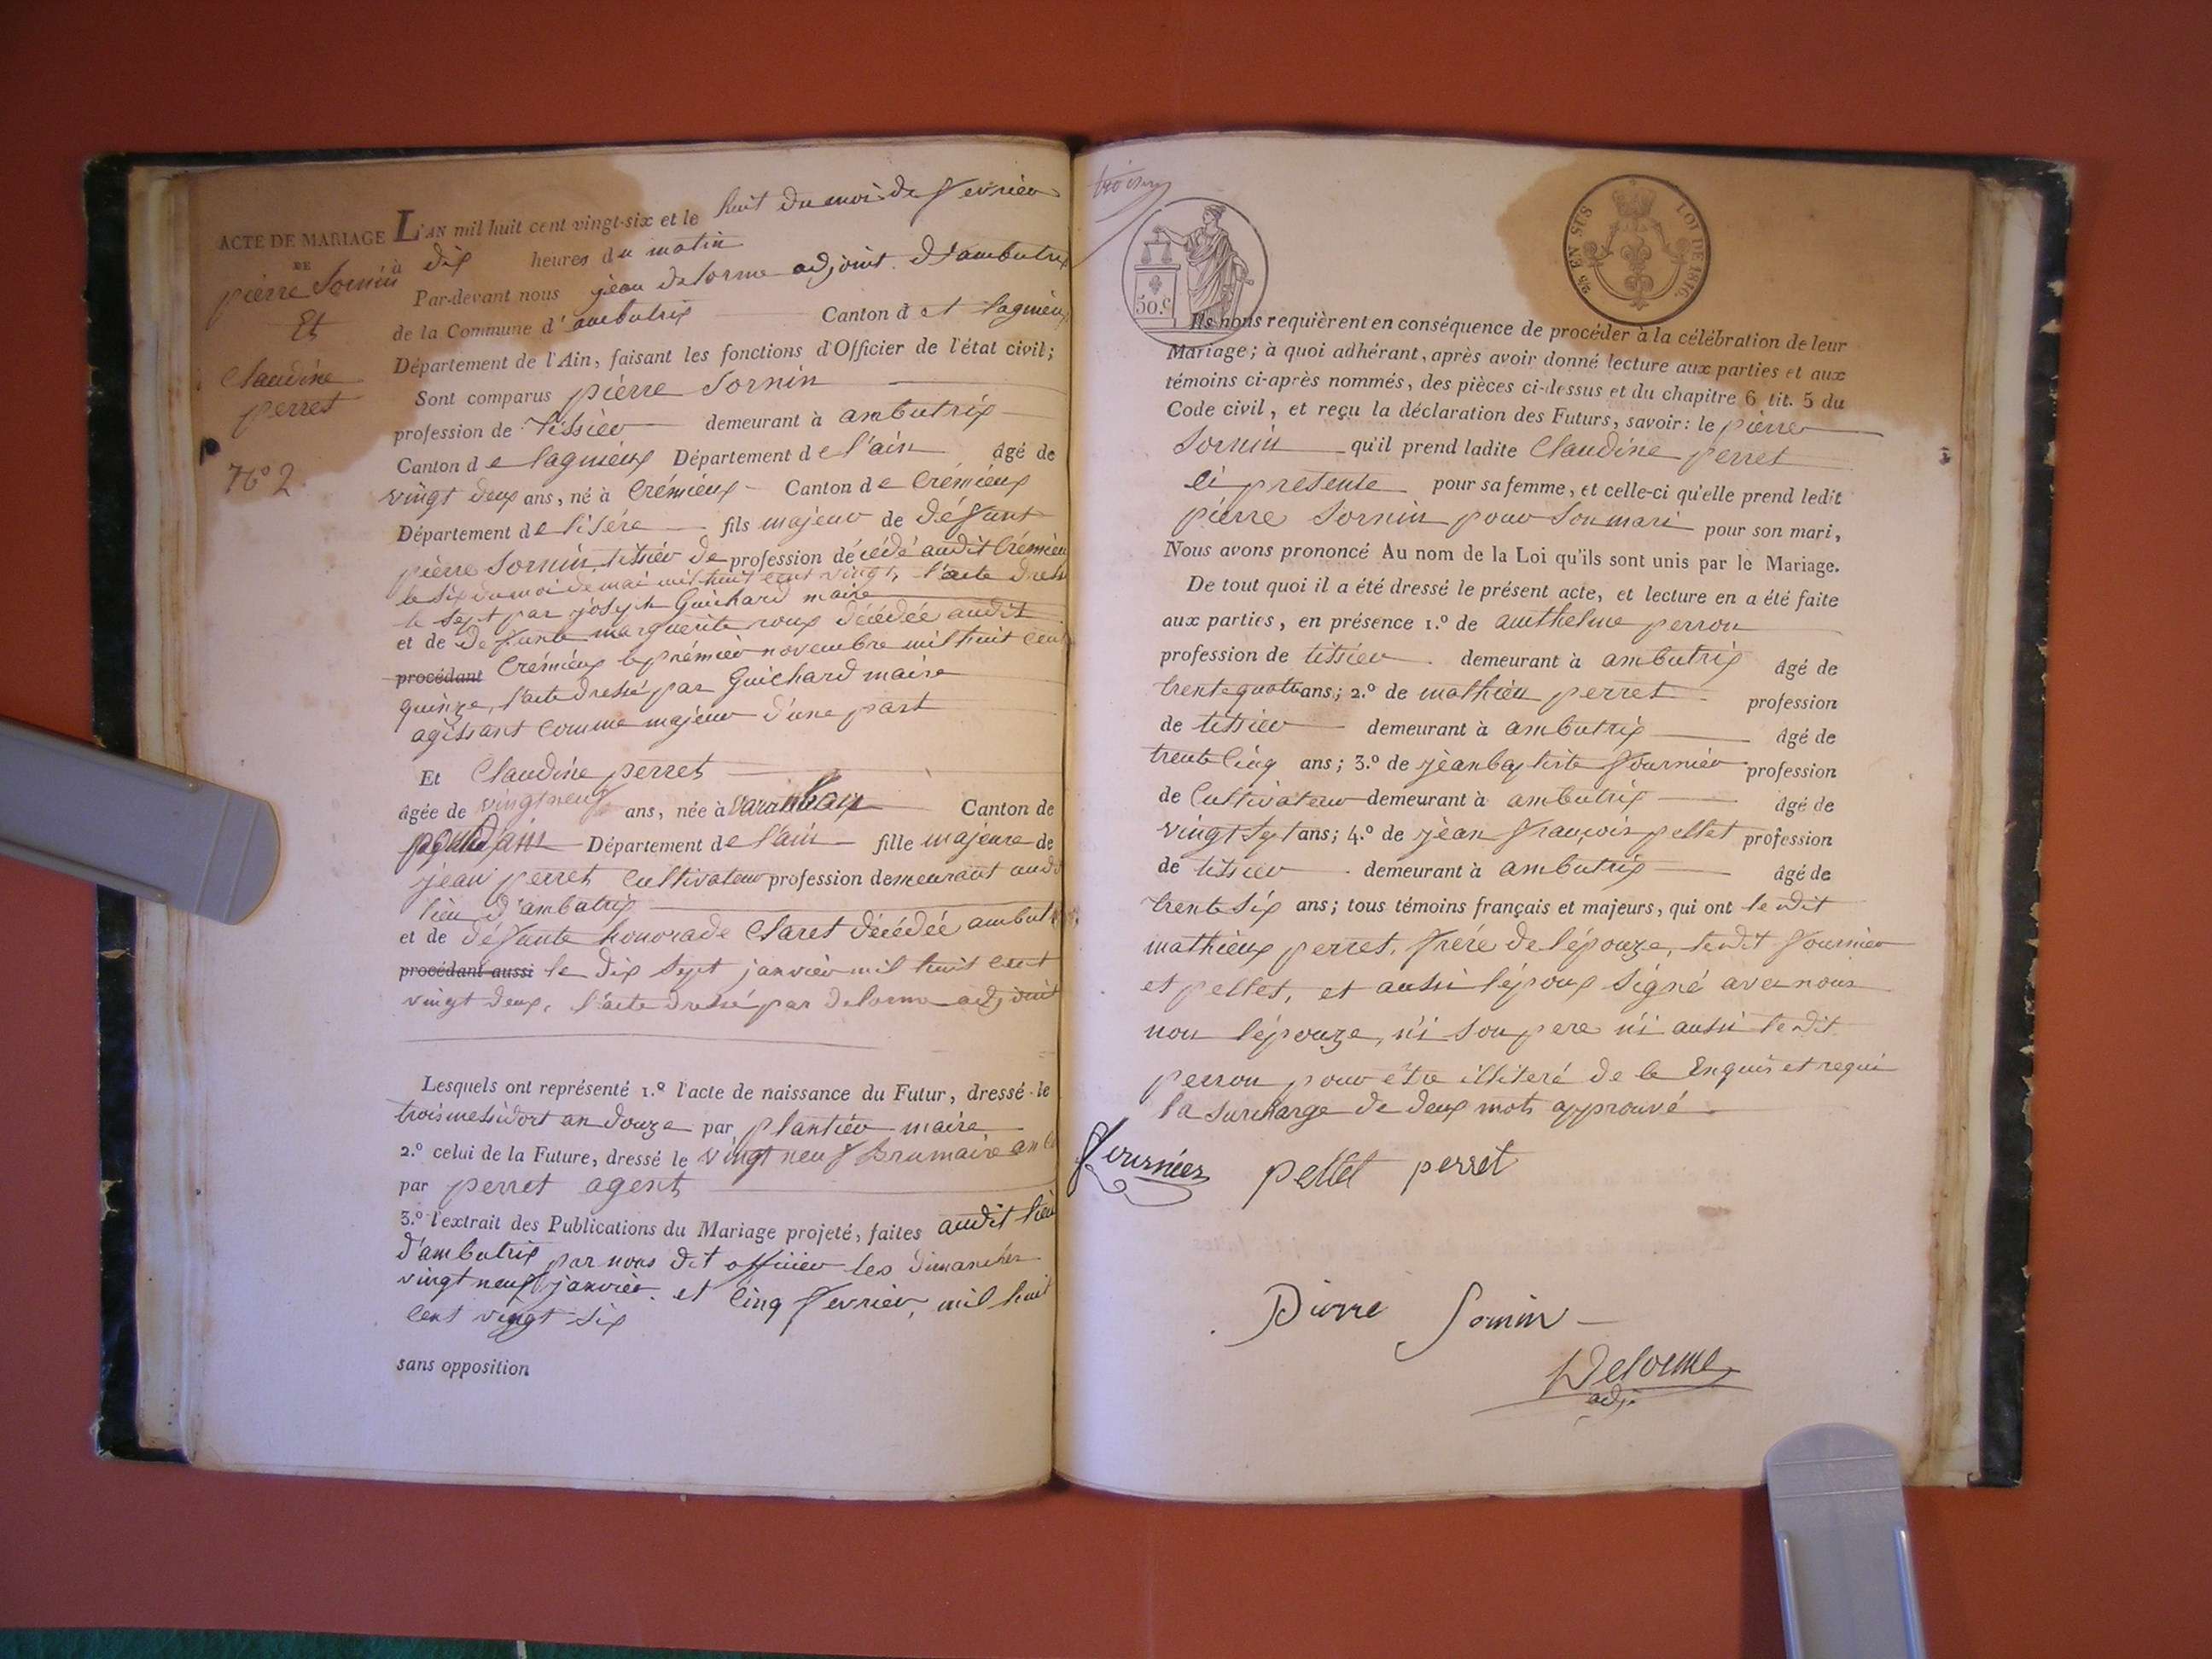 ACTE DE MARIAGE
DE
pierre Sornin
Et
Claudine
perret
N° 2
L'AN mil huit cent vingt-six et le huit du moi de fevrier
à dix heures du matin
Par-devant nous jean delorme adjoint d'ambutrix
de la Commune d'ambutrix Canton d et lagnieux
Département de l'Ain, faisant les fonctions d'Officier de l'état civil;
Sont comparus pierre Sornin
profession de tissier demeurant à ambutrix
Canton de lagnieux Département de l'ain âgé de
vingt deux ans, né à Crémieux Canton de Crémieux
Département de l'isére fils majeur de défunt
pierre Sornin tissier de profession décédé audit Crémieu
le six du moi de mai mil huit cent vingt, l'acte dressé
le sept par joseph Guichard maire
et de defunte marguerite roux décédée audit
procédant Crémieux le prémier novembre mil huit cent
quinze, l'acte dressé par Guichard maire
agissant comme majeur d'une part
Et Claudine perret
âgée de vingt neuf ans, née à Varambon Canton de
pontdain Département de l'ain fille majeure de
jean perret Cultivateur profession demeurant audit
lieu d'ambutrix
et de défunte honorade Claret décédée ambut
procédant aussi le dix sept janvier mil huit cent
vingt deux, l'acte dressé par delorme adjoint
Lesquels ont représenté 1.º l'acte de naissance du Futur, dressé le
trois messidort an douze par plantier maire
2.º celui de la Future, dressé le vingt neuf brumaire an
par perret agent
3.º l'extrait des Publications du Mariage projeté, faites audit lieu
d'ambutrix par nous dit officier les dimanches
vingt neuf janvier et cinq fevrier, mil huit
cent vingt six
sans opposition
50.c
EN SUS LOI DE 1816.
Ils nous requièrent en conséquence de procéder à la célébration de leur
Mariage; à quoi adhérant, après avoir donné lecture aux parties et aux
témoins ci-après nommés, des pièces ci-dessus et du chapitre 6 tit. 5 du
Code civil, et reçu la déclaration des Futurs, savoir: le pierre
Sornin qu'il prend ladite Claudine perret
ci presente pour sa femme, et celle-ci qu'elle prend ledit
pierre Sornin pour son mari pour son mari,
Nous avons prononcé Au nom de la Loi qu'ils sont unis par le Mariage.
De tout quoi il a été dressé le présent acte, et lecture en a été faite
aux parties, en présence 1.º de anthelme perron
profession de tissier demeurant à ambutrix âgé de
trente quatre ans; 2.º de mathieu perret profession
de tissier demeurant à ambutrix âgé de
trente cinq ans; 3.º de jean baptiste fournier profession
de Cultivateur demeurant à ambutrix âgé de
vingt sept ans; 4.º de jean françois pellet profession
de tissier demeurant à ambutrix âgé de
trente six ans; tous témoins français et majeurs, qui ont le dit
mathieux perret, frére de l'épouze, le dit fournier
et pellet, et aussi l'époux signé avec nous
non l'épouze, n'i son pere n'i aussi le dit
perron pour etre illiteré de le Enquis et requi
la surcharge de deux mots approuvé
fournier pellet perret
Pierre Sornin
Delorme
adj.